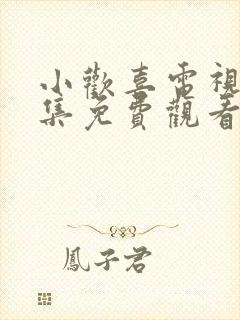 小歡喜電視
集免費觀看
鳳子君